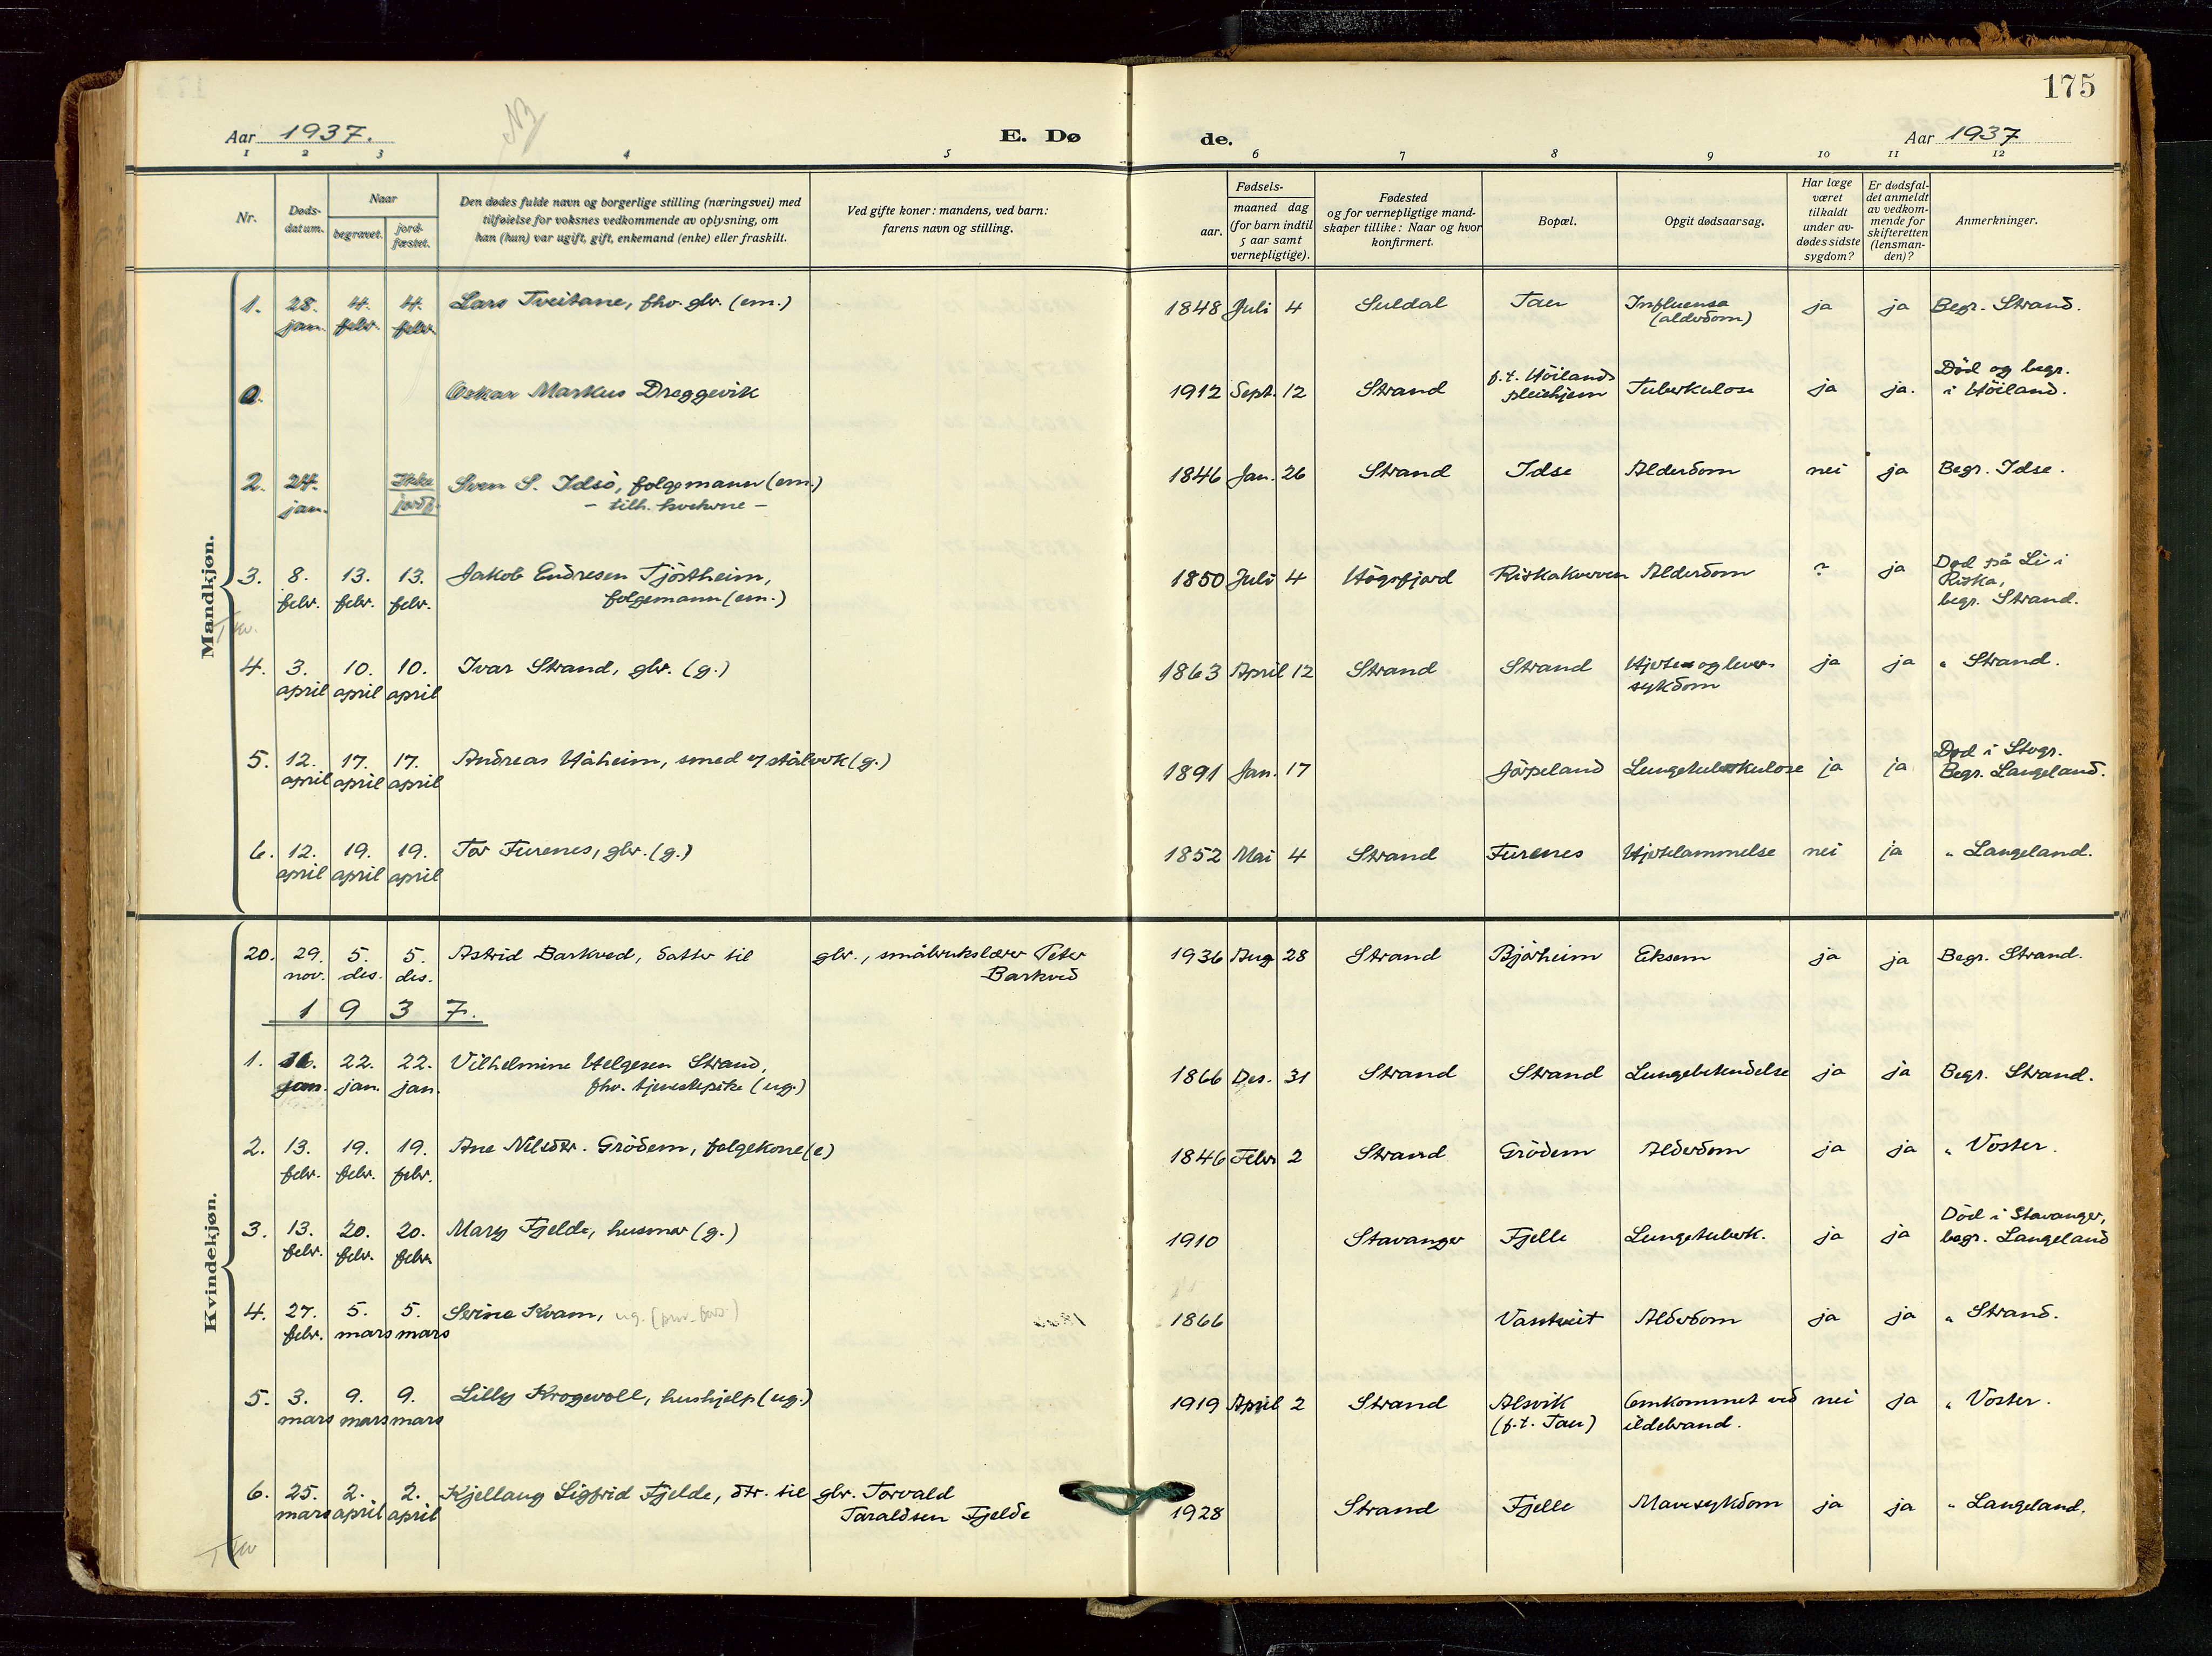 175
Aar 1937.
E. Dø
de.
Aar 1937
1 2 3 4 5 6 7 8 9 10 11 12
Nr.
Døds-
datum.
Naar
begravet.
jord-
fæstet.
Den dødes fulde navn og borgerlige stilling (næringsvei) med
tilføielse for voksnes vedkommende av oplysning, om
han (hun) var ugift, gift, enkemand (enke) eller fraskilt.
Ved gifte koner: mandens, ved barn:
farens navn og stilling.
Fødsels-
aar.
maaned dag
(for barn indtil
5 aar samt
vernepligtige).
Fødested
og for vernepligtige mand-
skaper tillike: Naar og hvor
konfirmert.
Bopæl.
Opgit dødsaarsag.
Har læge
været
tilkaldt
under av-
dødes sidste
sygdom?
Er dødsfal-
det anmeldt
av vedkom-
mende for
skifteretten
(lensman-
den)?
Anmerkninger.
Mandkjøn.
1. 28. 4. 4. Lars Tveitane, fhv. gbr. (em.) 1848 Juli 4 Suldal Tau Influensa ja ja Begr. Strand.
jan. febr. febr. (alderdom)
0. Oskar Markus Dreggevik 1912 Sept. 12 Strand f.t. Höilands Tuberkulose ja ja. Död og begr.
pleiehjem i Höiland.
2. 24. Ikke Sven S. Idsö, folgemann (em.) 1846 Jan. 26 Strand Idse Alderdom nei ja Begr. Idse.
jan. jordf. - tilh. -
3. 8. 13. 13. Jakob Endresen Tjöstheim, 1850 Juli 4 Högsfjord Riskakverven Alderdom ? ja Död på Li i
febr. febr. febr. folgemann (em.) Riska,
begr. Strand.
4. 3. 10. 10. Ivar Strand, gbr. (g.) 1863 April 12 Strand Strand Hjerte og lever- ja ja " Strand.
april april april sykdom
5. 12. 17. 17. Andreas Håheim, smed v/ stålverk (g.) 1891 Jan. 17 Jörpeland Lungetuberkulose ja ja Död i Stvgr.
april april april Begr. Langeland.
6. 12. 19. 19. Tor Furenes, gbr. (g.) 1852 Mai 4 Strand Furenes Hjertelammelse nei ja " Langeland.
april april april
Kvindekjøn.
20. 29. 5. 5. Astrid Barkved, datter til gbr., småbrukslærer Peter 1936 Aug 28 Strand Björheim Eksem ja ja Begr. Strand.
nov. des. des. Barkved
1937.
1. 16. 22. 22. Vilhelmine Helgesen Strand, 1866 Des. 31 Strand Strand Lungebetendelse ja ja Begr. Strand.
jan. jan. jan. fhv. tjenestepike (ug.)
2. 13. 19. 19. Ane Nilsdtr. Grödem, folgekone (e) 1846 Febr 2 Strand Grödem Alderdom ja ja " Voster.
febr. febr. febr.
3. 13. 20. 20. Mary Fjelde, husmor (g.) 1910 Stavanger Fjelle Lungetuberk. ja ja Död i Stavanger,
febr. febr. febr begr. Langeland
4. 27. 5. 5. Serine Kvam, ug. 1866 Vastveit Alderdom ja ja " Strand.
febr. mars mars
5. 3. 9. 9. Lilly Krogevoll, hushjelp (ug.) 1919 April 2 Strand Alsvik Omkommet ved nei ja " Voster.
mars mars mars (f.t. Tau) ildebrand.
6. 25. 2. 2. Kjellaug Sigfrid Fjelde, dtr. til gbr. Torvald 1928 Strand Fjelle Mavesykdom ja ja " Langeland.
mars april april Taraldsen Fjelde